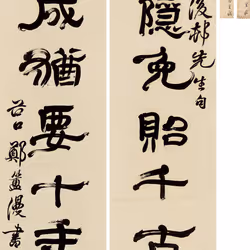 先生句
隱免貽千古
成猶要十年
谷口鄭簠漫書